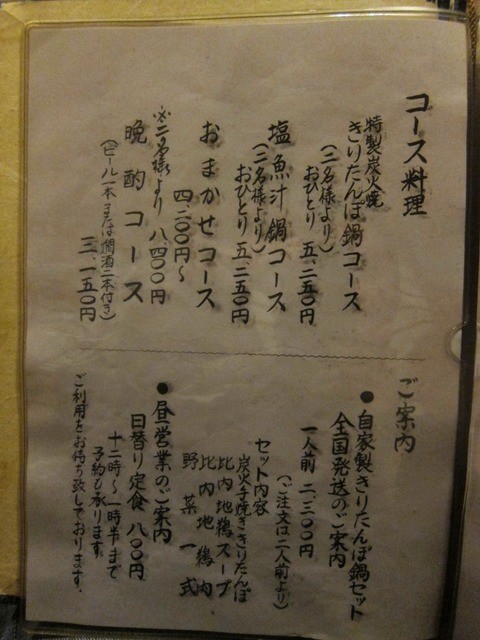 コース料理
特製炭火焼
きりたんぽ鍋コース
（二名様より）
おひとり 五、二五〇円
塩魚汁鍋コース
（二名様より）
おひとり 五、二五〇円
おまかせコース
四、二〇〇円～
※二名様より 八、四〇〇円
晩酌コース
（ビール一本または燗酒二本付き）
三、一五〇円
ご案内
●自家製きりたんぽ鍋セット
全国発送のご案内
一人前 二、三〇〇円
（ご注文は二人前より）
セット内容
炭火手焼ききりたんぽ
比内地鶏スープ
比内地鶏肉
野菜一式
●昼営業のご案内
日替り定食 八〇〇円
十二時～一時半まで
予約も承ります。
ご利用をお待ち致しております。